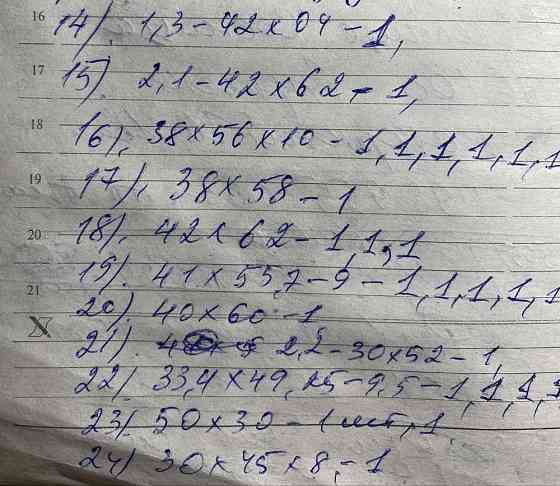 16
14). 1,3-42х04-1,
17
15). 2,1-42х62-1,
18
16), 38х56х10-1,1,1,1,1,1
19
17), 38х58-1
18). 42х62-1,1,1
20
19). 41х55,7-9-1,1,1,1,1
21
20). 40х60-1
21). 2,2-30х52-1,
22), 33,4х49,25-9,5-1,1,1,1
23), 50х30-1шт,1
24) 30х45х8,-1